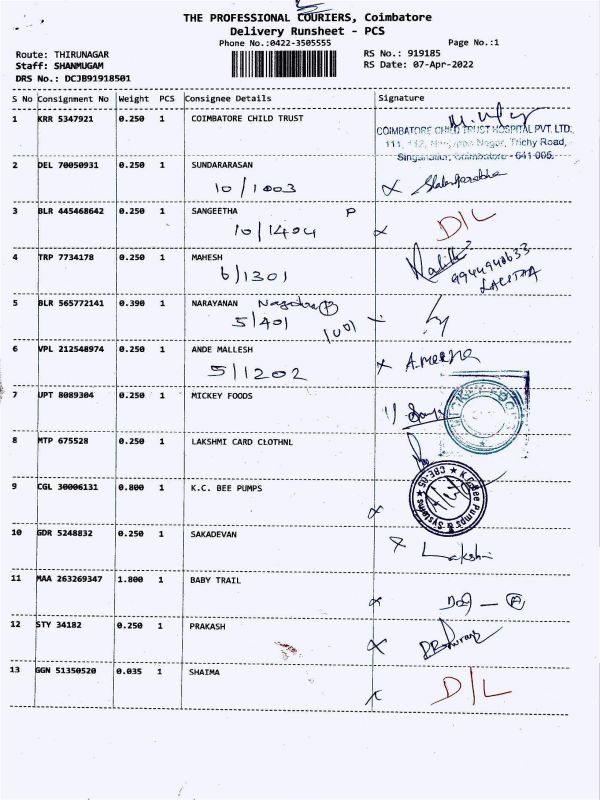 THE PROFESSIONAL COURIERS, Coimbatore
Delivery Runsheet - PCS
Phone No.:0422-3505555
Page No.:1
Route: THIRUNAGAR
RS No.: 919185
Staff: SHANMUGAM
RS Date: 07-Apr-2022
DRS No.: DCJB91918501
S No Consignment No Weight PCS Consignee Details Signature
1 KRR 5347921 0.250 1 COIMBATORE CHILD TRUST
COIMBATORE CHILD TRUST HOSPITAL PVT. LTD.
Nagar, Trichy Road,
Singanallur, Coimbatore - 641 005.
2 DEL 70050931 0.250 1 SUNDARARASAN
10/1003
3 BLR 445468642 0.250 1 SANGEETHA P
10/1404 D/L
4 TRP 7734178 0.250 1 MAHESH
6/1301
LALITHA
5 BLR 565772141 0.390 1 NARAYANAN
5/401 1001
6 VPL 212548974 0.250 1 ANDE MALLESH
5/1202 A.meena
7 UPT 8089304 0.250 1 MICKEY FOODS
8 MTP 675528 0.250 1 LAKSHMI CARD CLOTHNL
9 CGL 30006131 0.800 1 K.C. BEE PUMPS
K.C. Bee Pumps & Systems ★ CBE-05 ★
10 GDR 5248832 0.250 1 SAKADEVAN
Lakshmi
11 MAA 263269347 1.800 1 BABY TRAIL
12 STY 34182 0.250 1 PRAKASH
13 GGN 51350520 0.035 1 SHAIMA
D/L